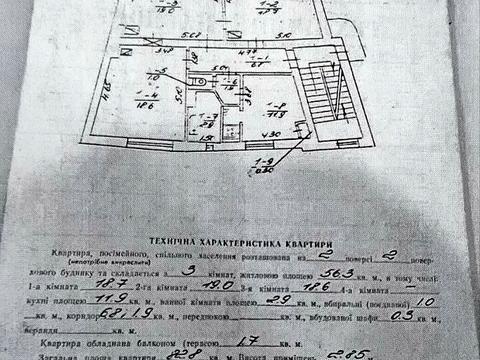 1-3
19.0
1-2
5.08
5.10
3.48
4.78
1-1
6.8
5.04
1-6
1.9
1-5
1.0
1-4
18.6
4.65
5.10
1-8
11.9
1-7
2.9
4.30
1-9
0.30
ТЕХНІЧНА ХАРАКТЕРИСТИКА КВАРТИРИ
Квартира, посімейного, спільного заселення розташована на 2 поверсі 2 повер-
(непотрібне викреслити)
хового будинку та складається з 3 кімнат, житловою площею 56.3 кв. м, в тому числі:
1-а кімната 18.7 2-га кімната 19.0 3-я кімната 18.6 4-а кімната — кв. м,
кухні площею 11.9 кв. м, ванної кімнати площею 2.9 кв. м, вбиральні (поєднаної) 1.0
кв. м, коридор 6.8; 1.9 кв. м, передпокою кв. м, вбудованої шафи 0.3 кв. м,
веранди кв. м.
Квартира обладнана балконом (терасою) 1.7 кв. м.
Загальна площа квартири 82.8 кв. м. Висота приміщень 2.85